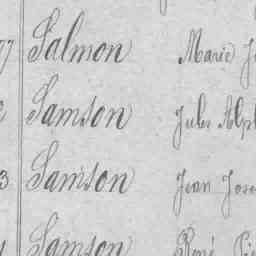 Salmon Marie
Samson Jules
Samson Jean
Samson René